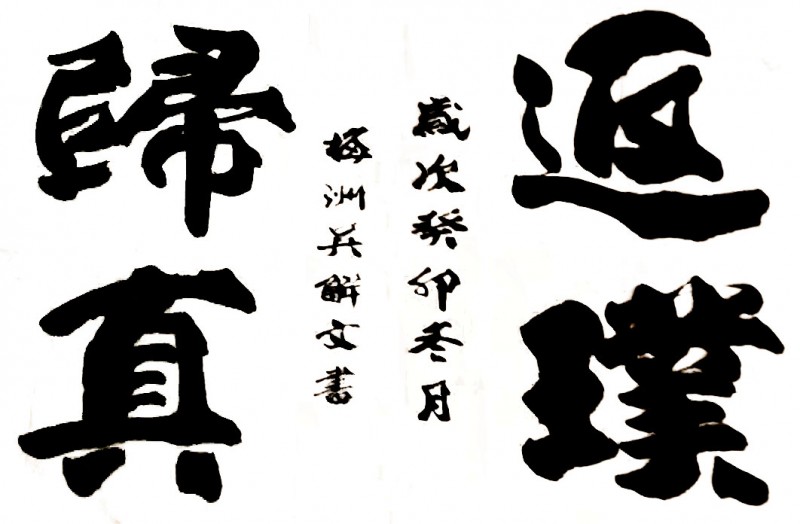 返璞
歸真
歲次癸卯冬月
梅洲吳解文書